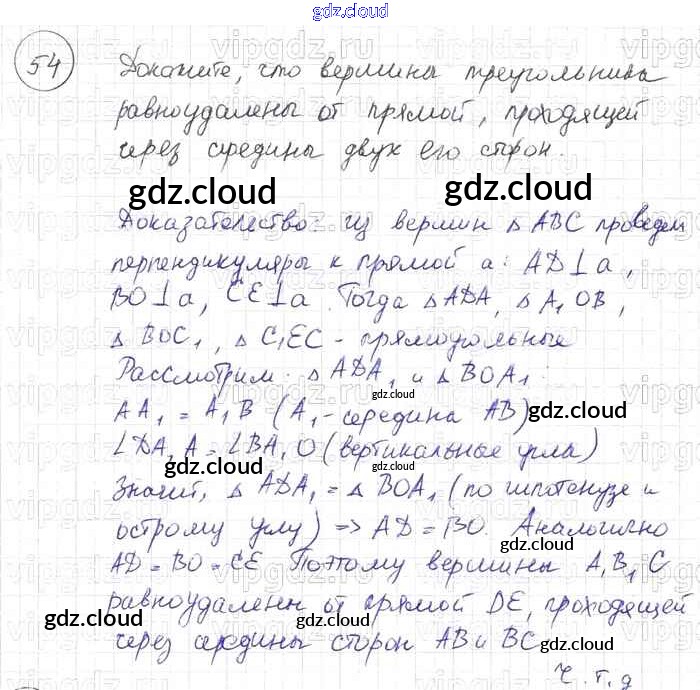 gdz.cloud
54 Докажите, что вершины треугольника
равноудалены от прямой, проходящей
через середины двух его сторон.
gdz.cloud gdz.cloud
Доказательство: из вершин △ ABC проведем
перпендикуляры к прямой a: AD⊥a,
BO⊥a, CE⊥a. Тогда △ADA₁, △A₁OB,
△BOC₁, △C₁EC - прямоугольные
Рассмотрим △ADA₁ и △BOA₁:
AA₁ = A₁B (A₁-середина AB)
gdz.cloud
∠DA₁A = ∠BA₁O (вертикальные углы)
gdz.cloud gdz.cloud
Значит, △ADA₁ = △BOA₁ (по гипотенузе и
острому углу) => AD = BO. Аналогично
gdz.cloud
AD = BO = CE Поэтому вершины A, B, C
равноудалены от прямой DE, проходящей
gdz.cloud gdz.cloud gdz.cloud
через середины сторон AB и BC
gdz.cloud
ч.т.д